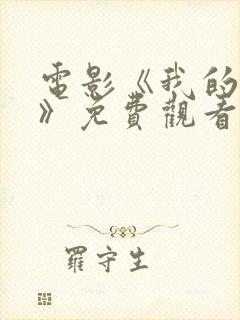 電影《我的
》免費觀看
羅守生